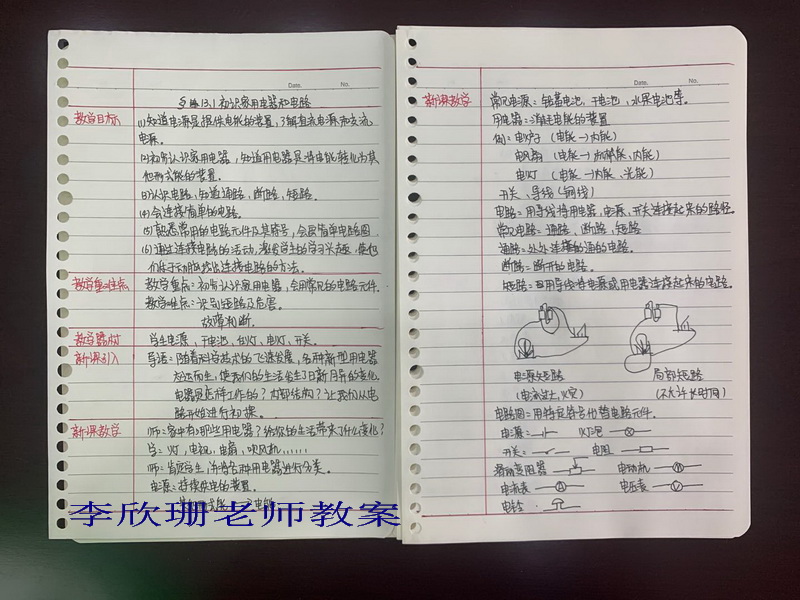 Date. No.
§ 13.1 初识家用电器和电路
教学目标
(1)知道电源是提供电能的装置,了解直流电源和交流
电源。
(2)初步认识家用电器,知道用电器是将电能转化为其
他形式能的装置。
(3)认识电路,知道通路,断路,短路。
(4)会连接简单的电路。
(5)熟悉常用的电路元件及其符号,会画简单电路图
(6)通过连接电路的活动,激发学生的学习兴趣,使他
们乐于动手
连接电路的方法。
教学重、难点
教学重点:初步认识家用电器,会用常见的电路元件。
教学难点:识别短路及危害。
故障判断。
教学器材
学生电源,干电池,灯,电灯,开关。
新课引入
导语:随着科学技术的飞速发展,各种新型用电器
应运而生,使我们的生活发生了日新月异的变化。
电器是怎样工作的?内部结构?让我们从电
路开始进行初探。
新课教学
师:家中有哪些用电器?给你的生活带来了什么变化?
生:灯,电视,电扇,吹风机……
师:肯定学生,并将各种用电器进行分类。
电源:持续供电的装置。
电能
李欣珊老师教案
Date. No.
新课教学
常见电源:铅蓄电池,干电池,水果电池等。
用电器:消耗电能的装置
例:电炉子(电能→内能)
电风扇(电能→机械能,内能)
电灯(电能→内能,光能)
开关、导线(铜线)
电路:用导线将用电器,电源,开关连接起来的路径。
常见电路:通路,断路,短路
通路:处处连接的通的电路。
断路:断开的电路。
短路:只用导线将电源或用电器连接起来的电路。
电源短路
局部短路
(电流过大,火灾)
(不允许长时间)
电路图:用特定符号代替电路元件。
电源:
灯泡
开关:
电阻
滑动变阻器
电动机 M
电流表 A
电压表 V
电铃